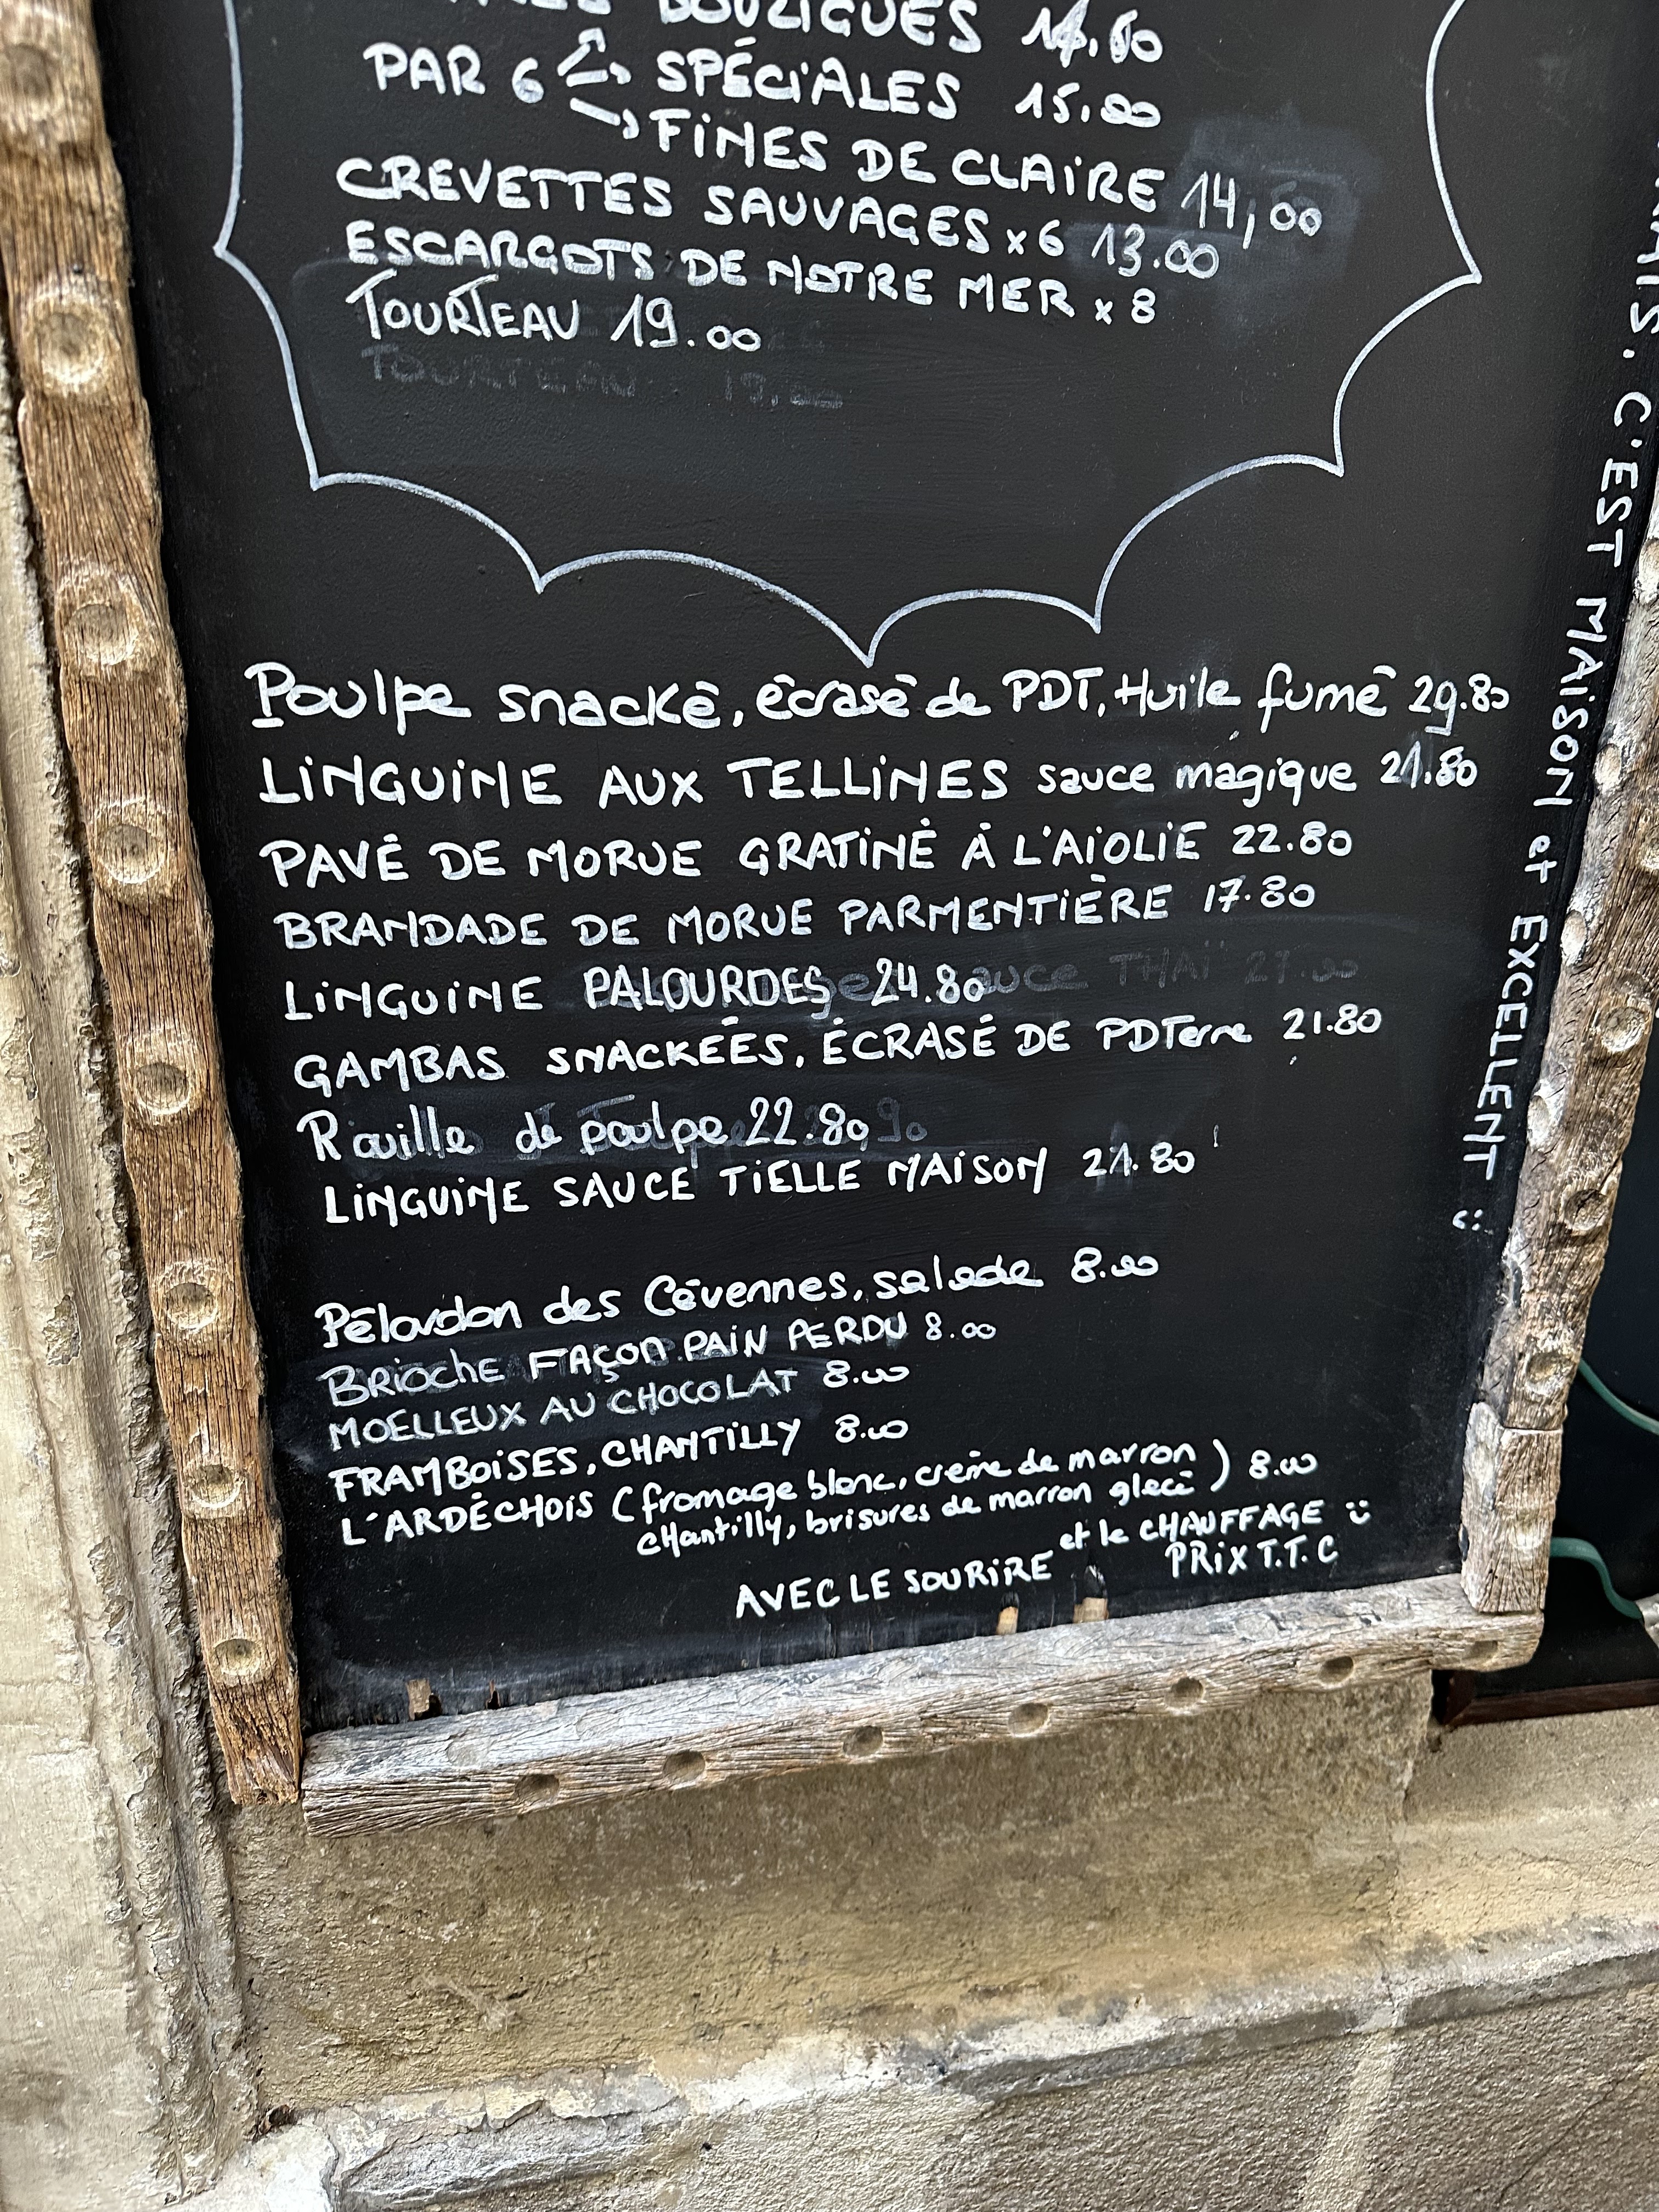 BOUZIGUES 14.60
PAR 6 SPÉCIALES 15.00
FINES DE CLAIRE 14,00
CREVETTES SAUVAGES x 6 13.00
ESCARGOTS DE NOTRE MER x 8
TOURTEAU 19.00
TOURTEAU 19.00
Poulpe snacké, écrasé de PDT, Huile fumé 29.80
LINGUINE AUX TELLINES sauce magique 21.80
PAVÉ DE MORUE GRATINÉ À L'AIOLIE 22.80
BRANDADE DE MORUE PARMENTIÈRE 17.80
LINGUINE PALOURDES 24.80
sauce THAÏ
GAMBAS SNACKÉES, ÉCRASÉ DE PDTerre 21.80
Rouille de poulpe 22.80
LINGUINE SAUCE TIELLE MAISON 21.80
Pélardon des Cévennes, salade 8.00
BRIOCHE FAÇON PAIN PERDU 8.00
MOELLEUX AU CHOCOLAT 8.00
FRAMBOISES, CHANTILLY 8.00
L'ARDÉCHOIS (fromage blanc, crème de marron
chantilly, brisures de marron glacé) 8.00
AVEC LE SOURIRE et le CHAUFFAGE :)
PRIX T.T.C
C'EST MAISON et EXCELLENT :)